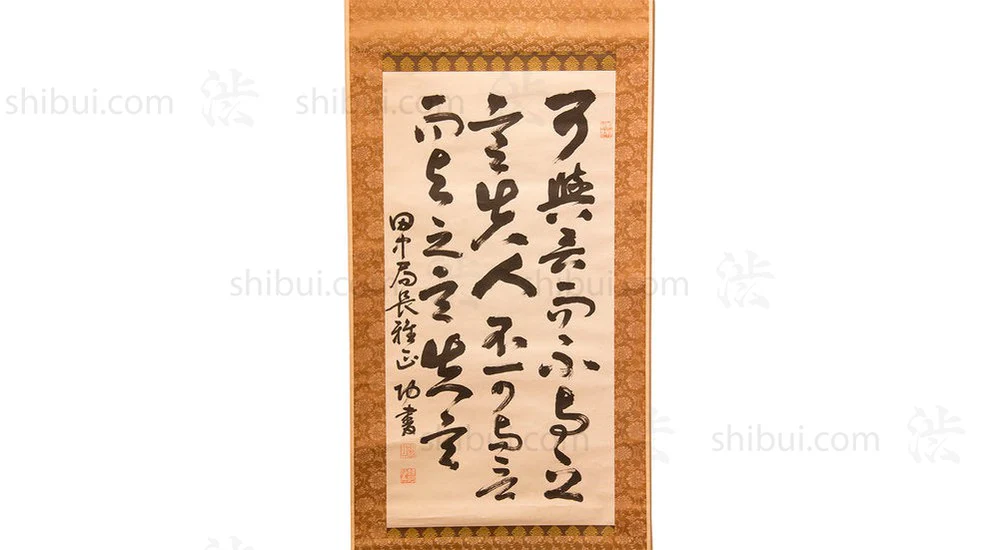 可與言而不与之
言失人不可与言
而与之言失言
田中局長雅正 功書
shibui.com 渋 shibui.com 渋
shibui.com shibui.com 渋
shibui.com shibui.com 渋